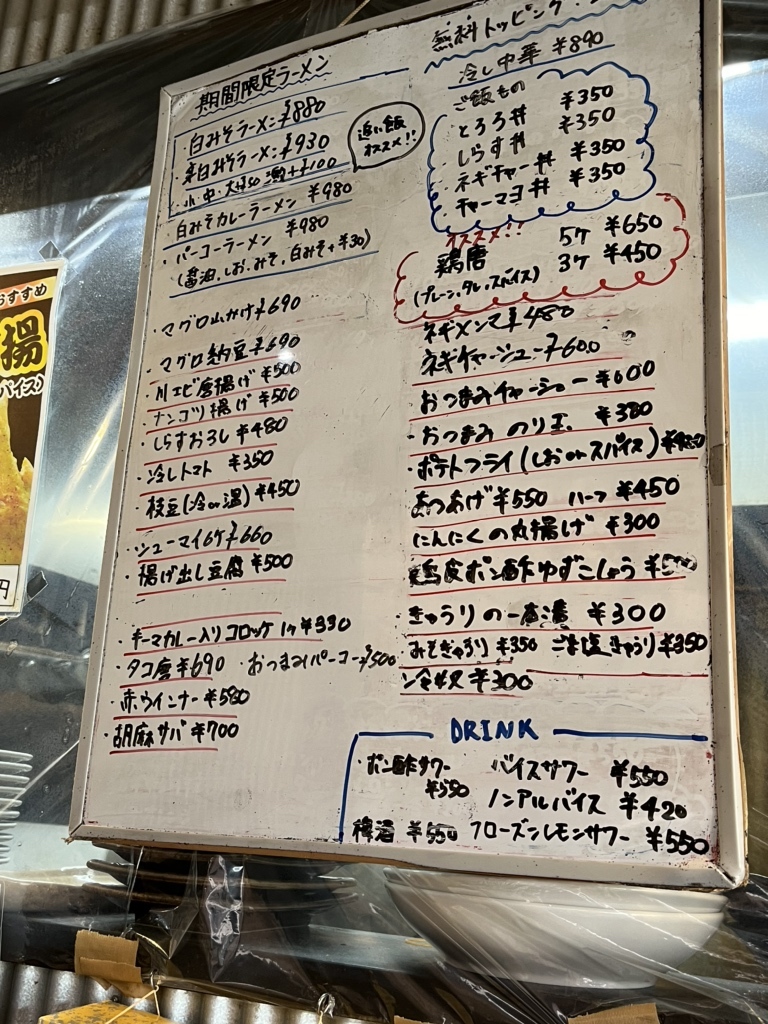 期間限定ラーメン
・白みそラーメン ¥880
・辛白みそラーメン ¥930
小・中・大 +¥100
追い飯
オススメ!!
・白みそカレーラーメン ¥980
・パーコーラーメン ¥980
(醤油,しお,みそ,白みそ+¥30)
・マグロ山かけ ¥690
・マグロ納豆 ¥690
・川エビ唐揚げ ¥500
・ナンコツ揚げ ¥500
・しらすおろし ¥480
・冷しトマト ¥350
・枝豆(冷or温) ¥450
・シューマイ6ケ ¥660
・揚げ出し豆腐 ¥500
・キーマカレー入りコロッケ 1ケ ¥330
・タコ唐 ¥690 ・おつまみパーコー ¥500
・赤ウインナー ¥580
・胡麻サバ ¥700
無料トッピング
冷し中華 ¥890
ご飯もの
とろろ丼 ¥350
しらす丼 ¥350
ネギチャー丼 ¥350
チャーマヨ丼 ¥350
オススメ!!
鶏唐 5ケ ¥650
3ケ ¥450
(プレーン,タレ,スパイス)
・ネギメンマ ¥480
・ネギチャーシュー ¥600
・おつまみチャーシュー ¥600
・おつまみ のり玉 ¥380
・ポテトフライ(しおorスパイス)
・あつあげ ¥550 ハーフ ¥450
・にんにくの丸揚げ ¥300
・鶏皮ポン酢ゆずこしょう
・きゅうりの一本漬 ¥300
・みそきゅうり ¥350 ごま塩きゅうり ¥350
・冷奴 ¥300
DRINK
・ポン酢サワー
¥550
バイスサワー ¥550
ノンアルバイス ¥420
梅酒 ¥550 フローズンレモンサワー ¥550
おすすめ
揚
パイス)
円